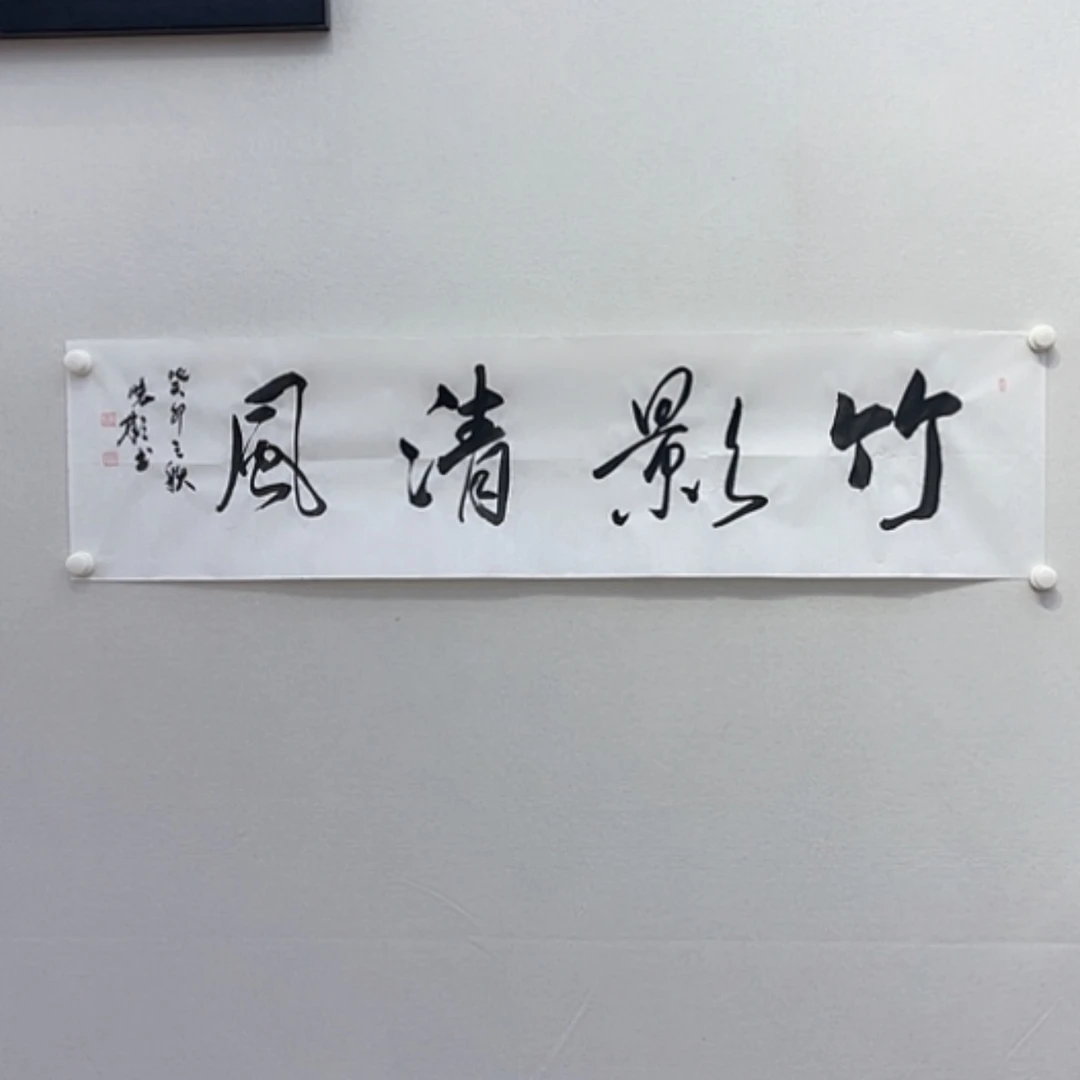 竹影清風
癸卯之秋
書